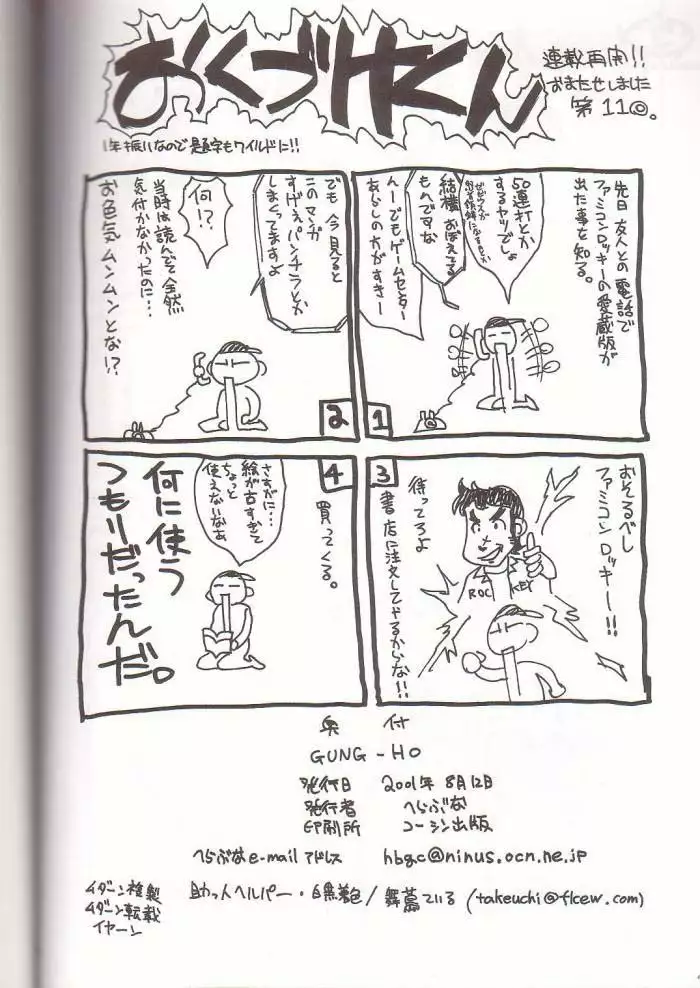 おくづけくん
連載再開!!
おまたせしました
第11回。
1年振りなので題字もワイルドに!!
先日 友人との電話で
ファミコンロッキーの愛蔵版が
出た事を知る。
50連打とか
するヤツでしょ
結構おぼえてる
もんですな
んー でもゲームセンター
あらしの方がすきー
1
でも 今見ると
このマンガ
すげえパンチラとか
しまくってますよ
何!?
当時は読んでて全然
気付かなかったのに…
お色気ムンムンとな!?
2
おそるべし
ファミコンロッキー!!
ROC KEY
待ってろよ
書店に注文してやるからな!!
3
買ってくる。
さすがに…
絵が古すぎて
ちょっと
使えないなあ
何に使う
つもりだったんだ。
4
奥付
GUNG-HO
発行日 2001年8月12日
発行者 へらぶな
印刷所 コーシン出版
へらぶなe-mailアドレス hbgc@ninus.ocn.ne.jp
助っ人ヘルパー・白無着色/舞蔦ているる (takeuchi@flcew.com)
イダーン複製
イダーン転載
イヤーン